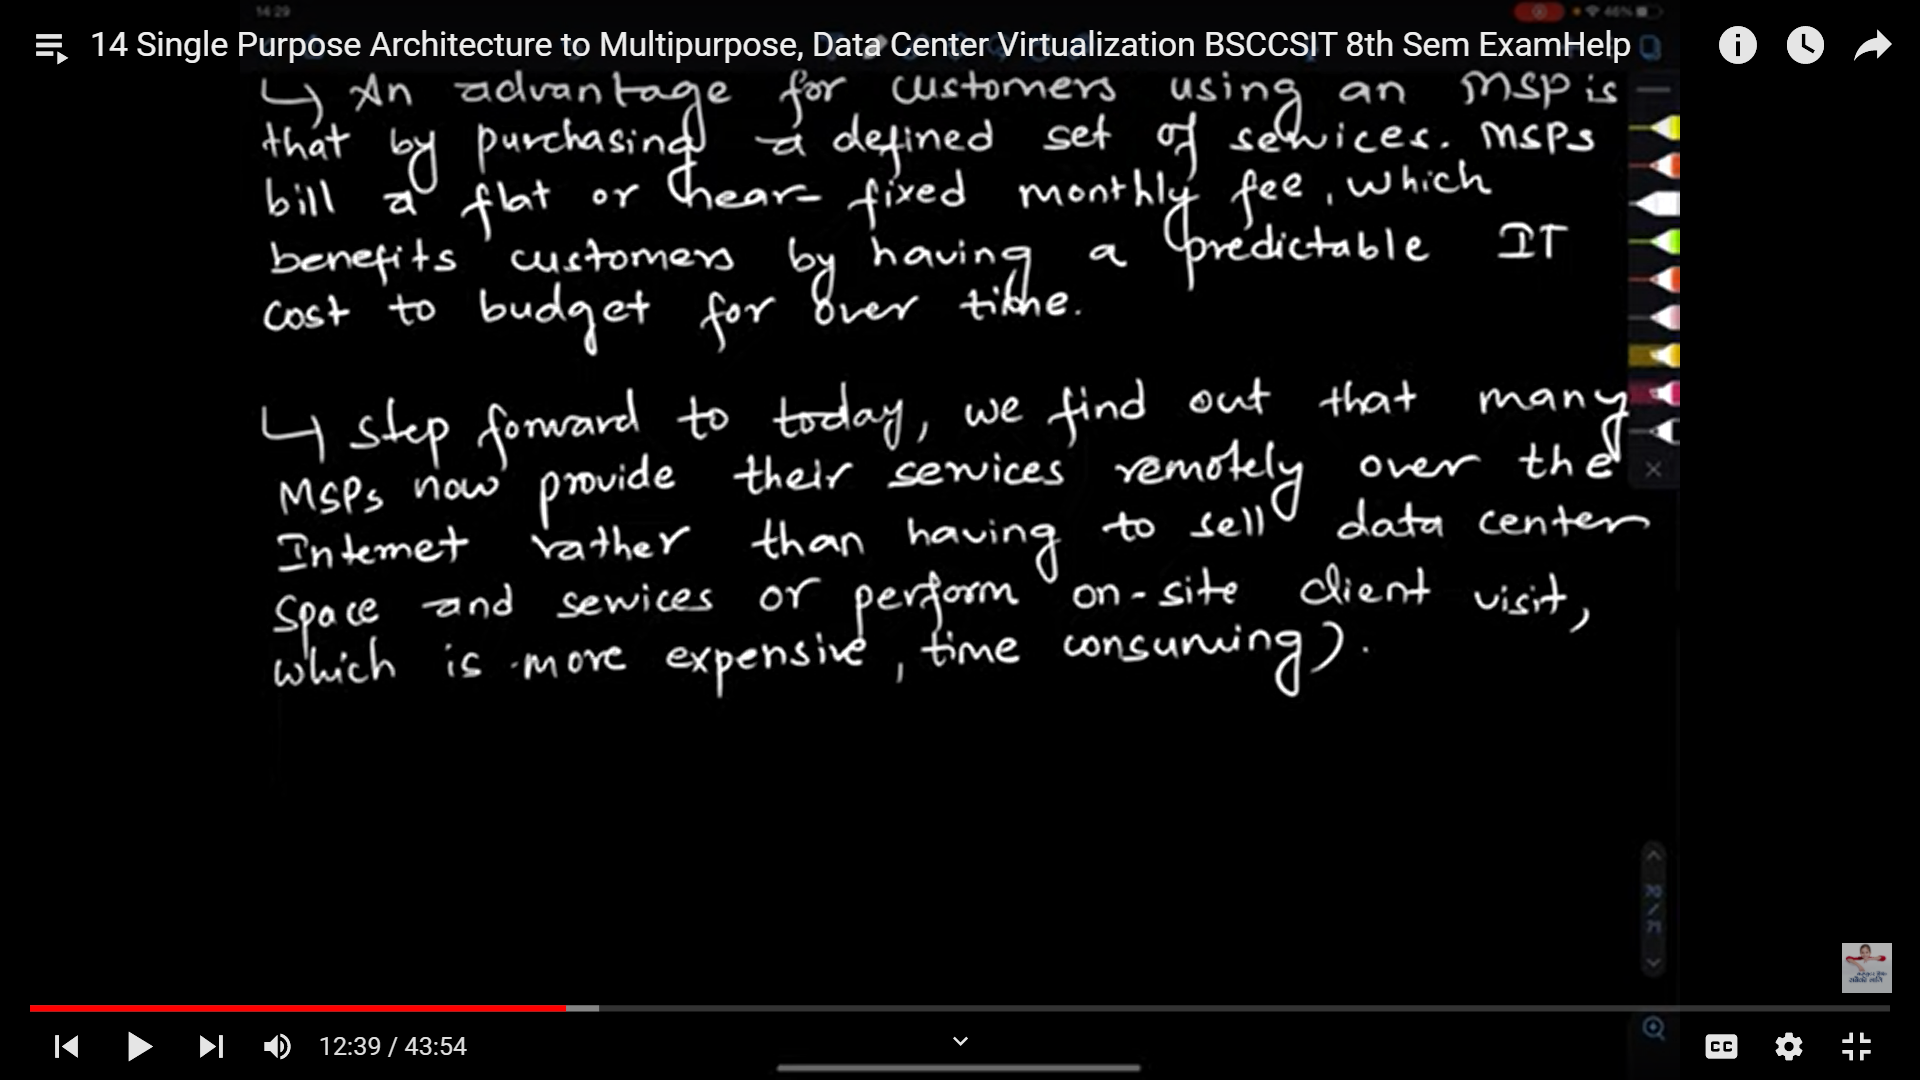 14:29
46%
14 Single Purpose Architecture to Multipurpose, Data Center Virtualization BSCCSIT 8th Sem ExamHelp
↳ An advantage for customers using an MSP is
that by purchasing a defined set of services. MSPs
bill a flat or near-fixed monthly fee, which
benefits customers by having a predictable IT
cost to budget for over time.
↳ Step forward to today, we find out that many
MSPs now provide their services remotely over the
Internet rather than having to sell data center
space and services or perform on-site client visit,
which is more expensive, time consuming).
12:39 / 43:54
CC